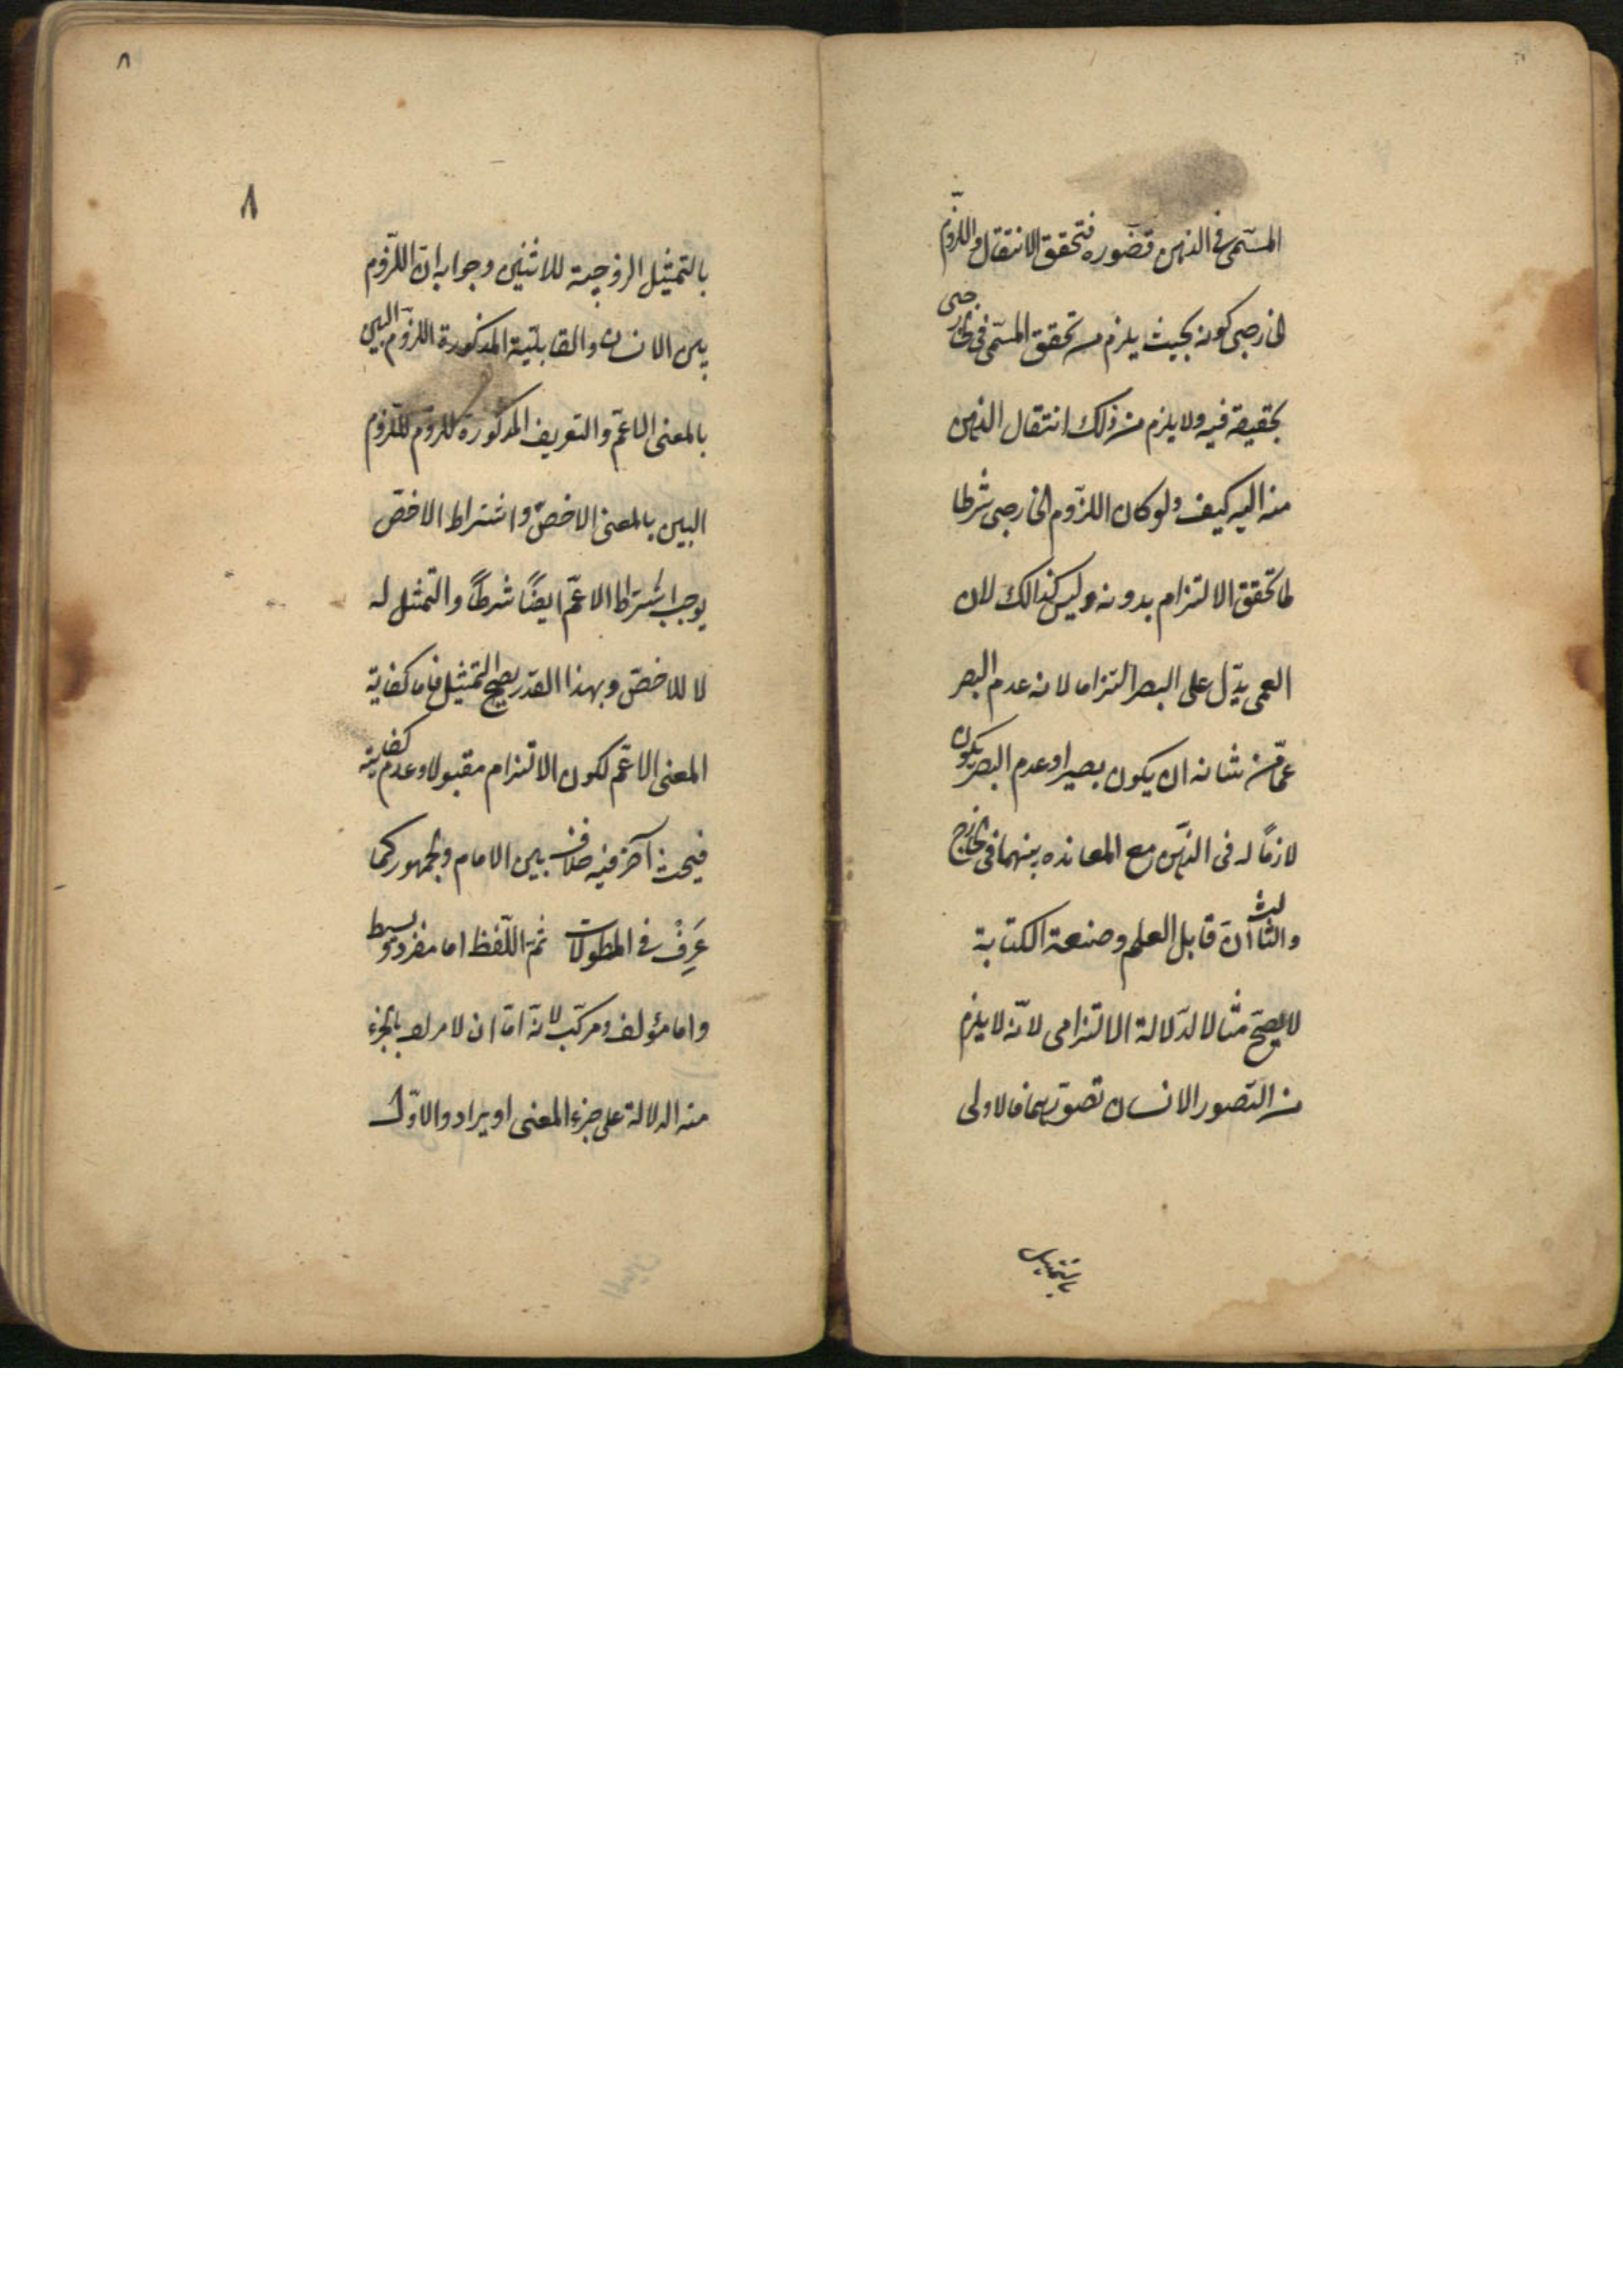 المسّمى فى الذهن قصّوره فتحقق الانتقال واللزّوم
الخارجى كونه بحيث يلزم من تحقق المسّمى فى الخارجى
بحقيقة فيه ولا يلزم من ذلك انتقال الذهن
منه اليه كيف ولو كان اللزّوم الخارجى شرطا
لما تحقق الالتزام بدونه وليس كذالك لان
العمى يدّل على البصر التزاما لانه عدم البصر
عمّا من شانه ان يكون بصيرا وعدم البصر يكون
لازمًا له فى الذّهن مع المعانده بينهما فى الخارج
والثالث انّ قابل العلم وصنعة الكتابة
لا يصحّ مثالا لدّلالة الالتزامى لانّه لا يلزم
من التّصور الانسان تصوّرهما فالاولى
بالتمثيل
٨
٨
بالتمثيل الزوجية للاثنين وجوابه انّ اللزّوم
بين الانسان والقابليّة المذكورة اللزّوم البين
بالمعنى الاعمّ والتعريف المذكورة للزوم للّزوم
البين بالمعنى الاخصّ واشتراط الاخصّ
يوجب اشتراط الاعمّ ايضًا شرطًا والتّمثل له
لا للاخصّ وبهذا القدر يصحّ التمثيل فاما كفاية
المعنى الاعمّ لكون الالتزام مقبولا وعدم كفايته
فبحث آخر فيه خلاف بين الامام والجمهور كما
عَرِفْ فى المطولات ثمّ اللّفظ اما مفرد وبسيط
واما مؤلف ومركّب لانّه امّا ان لا يراد بالجزء
منه الدلالة على جزء المعنى او يراد والاوّل